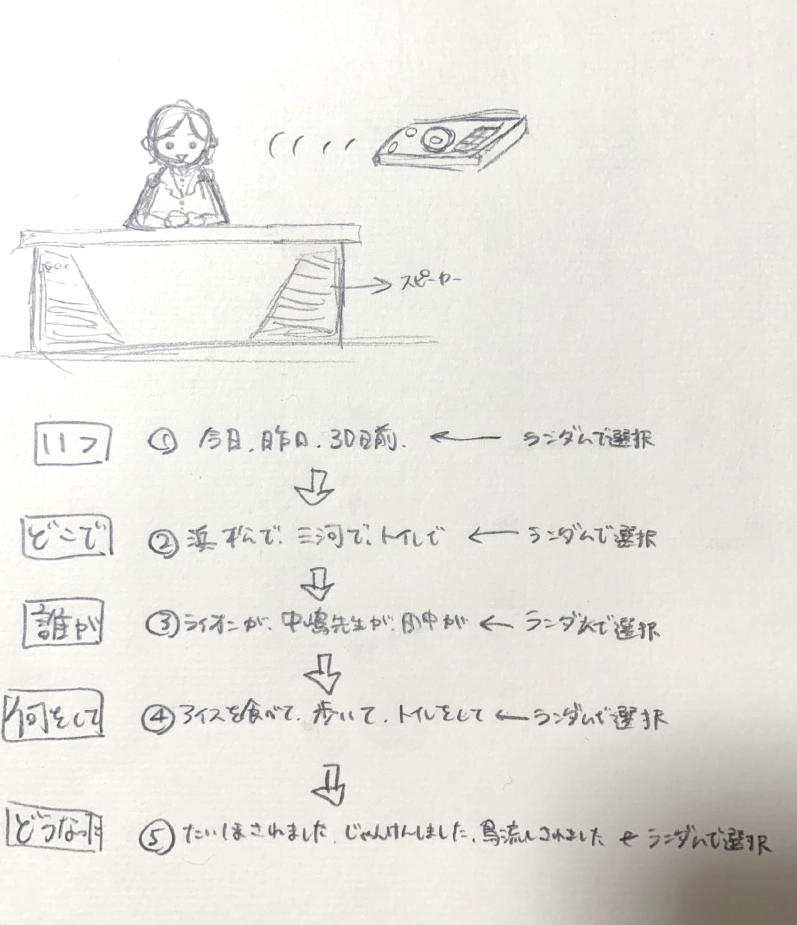 スピーカー
いつ ① 今日、昨日、30日前、 ← ランダムで選択
どこで ② 浜松で、三河で、トイレで ← ランダムで選択
誰が ③ ライオンが、中嶋先生が、田中が ← ランダムで選択
何をして ④ アイスを食べて、歩いて、トイレをして ← ランダムで選択
どうなった ⑤ たいほされました、じゃんけんしました、島流しされました ← ランダムで選択